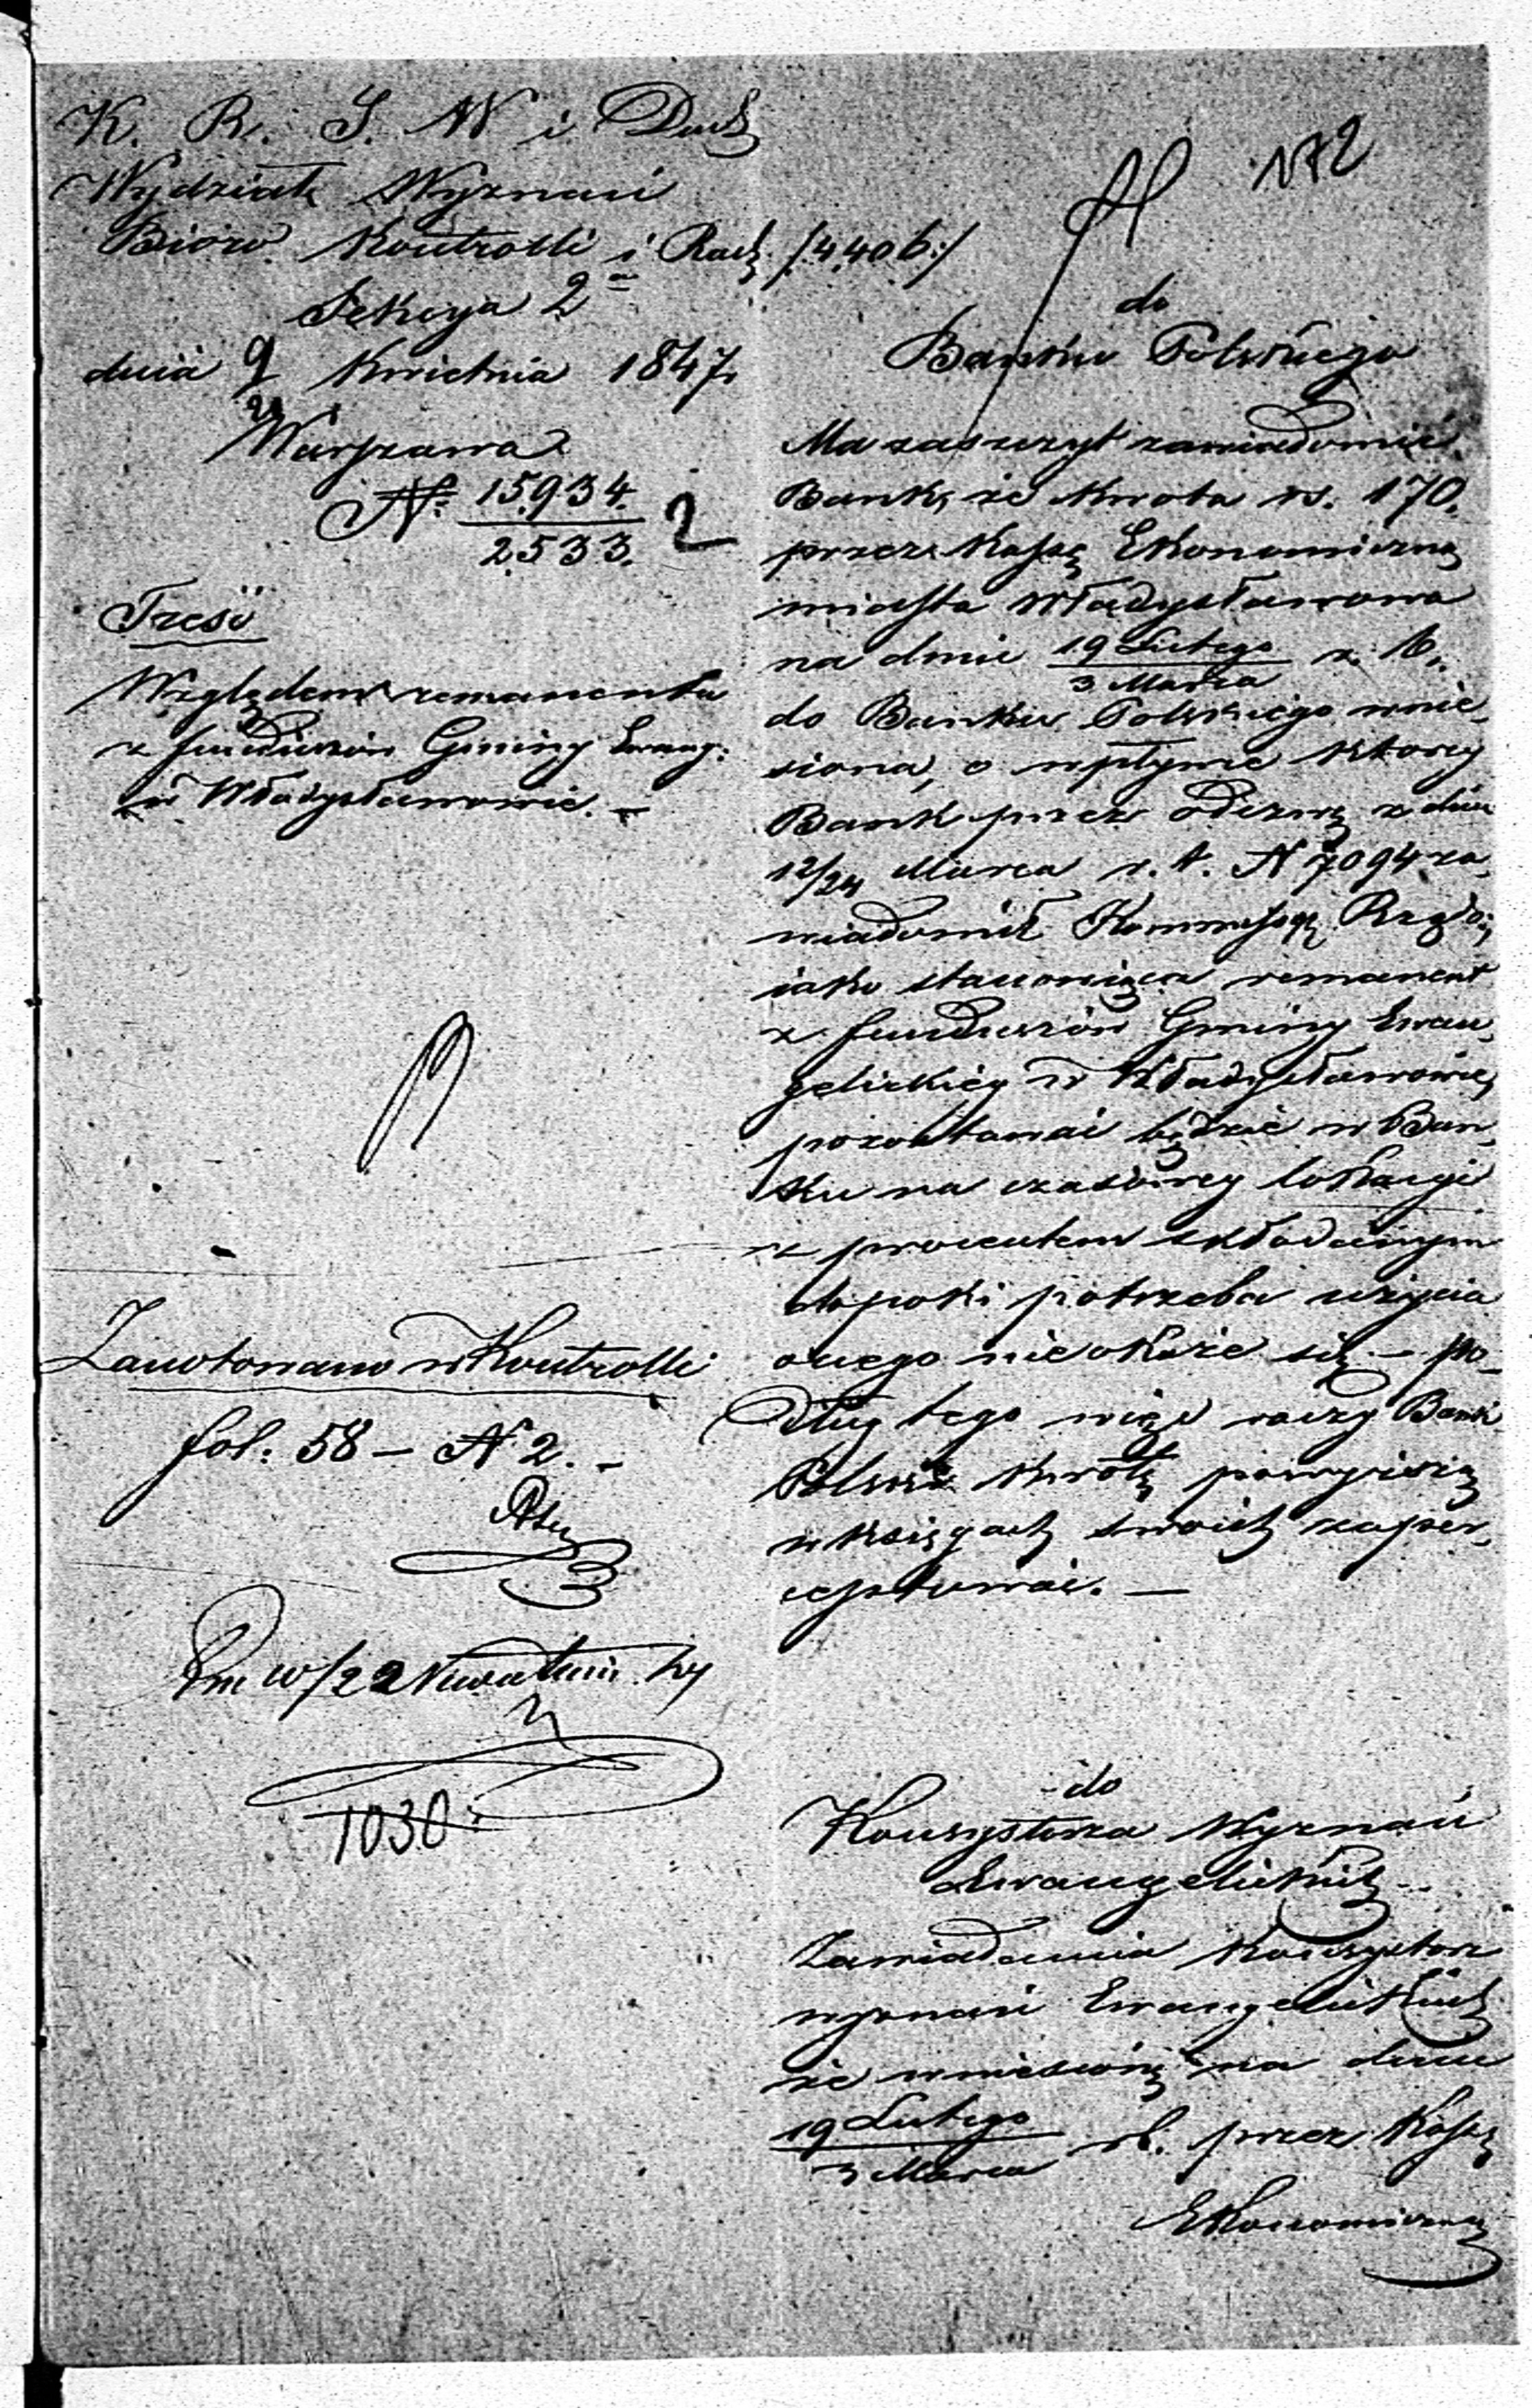 K. R. S. W i Duch
Wydział Wyznań
Bióro Kontrolli i Rach. /4406:/
Sekcya 2a
dnia 9 Kwietnia 1847
21
Warszawa
No 15934.
2533.
2
Treść
Względem remanentu
z funduszów Gminy Ewang:
w Władysławowie. —
Zanotowano w Kontrolli
fol: 58 — N 2. —
22
1030
172
do
Banku Polskiego
Ma zaszczyt zawiadomić
Bank, że kwota rs. 170.
przez Kassę Ekonomiczną
miasta Władysławowa
na dniu 19 Lutego
3 Marca
do Banku Polskiego wnie-
siona, o wpływie którey
Bank przez odezwę z dnia
12/24 Marca r. b. N 7094 za-
wiadomił Kommissyą Rządo:
iako stanowiąca remanent
z funduszów Gminy Ewan-
gelickiéy w Władysławowie,
pozostawać będzie w Ban-
ku na czasowey lokacyi
z procentem składanym
dopoki potrzeba użycia
onego nieokaże się. — po-
dług tego więc raczy Bank
Polski kwotę powyższą
w księgach swoich zaper-
cyptować. —
do
Konsystorza Wyznań
Ewangelickich
Zawiadamia Konsystorz
wyznań Ewangelickich
że wniesioną na dniu
19 Lutego
3 Marca rb. przez Kassę
Ekonomiczną